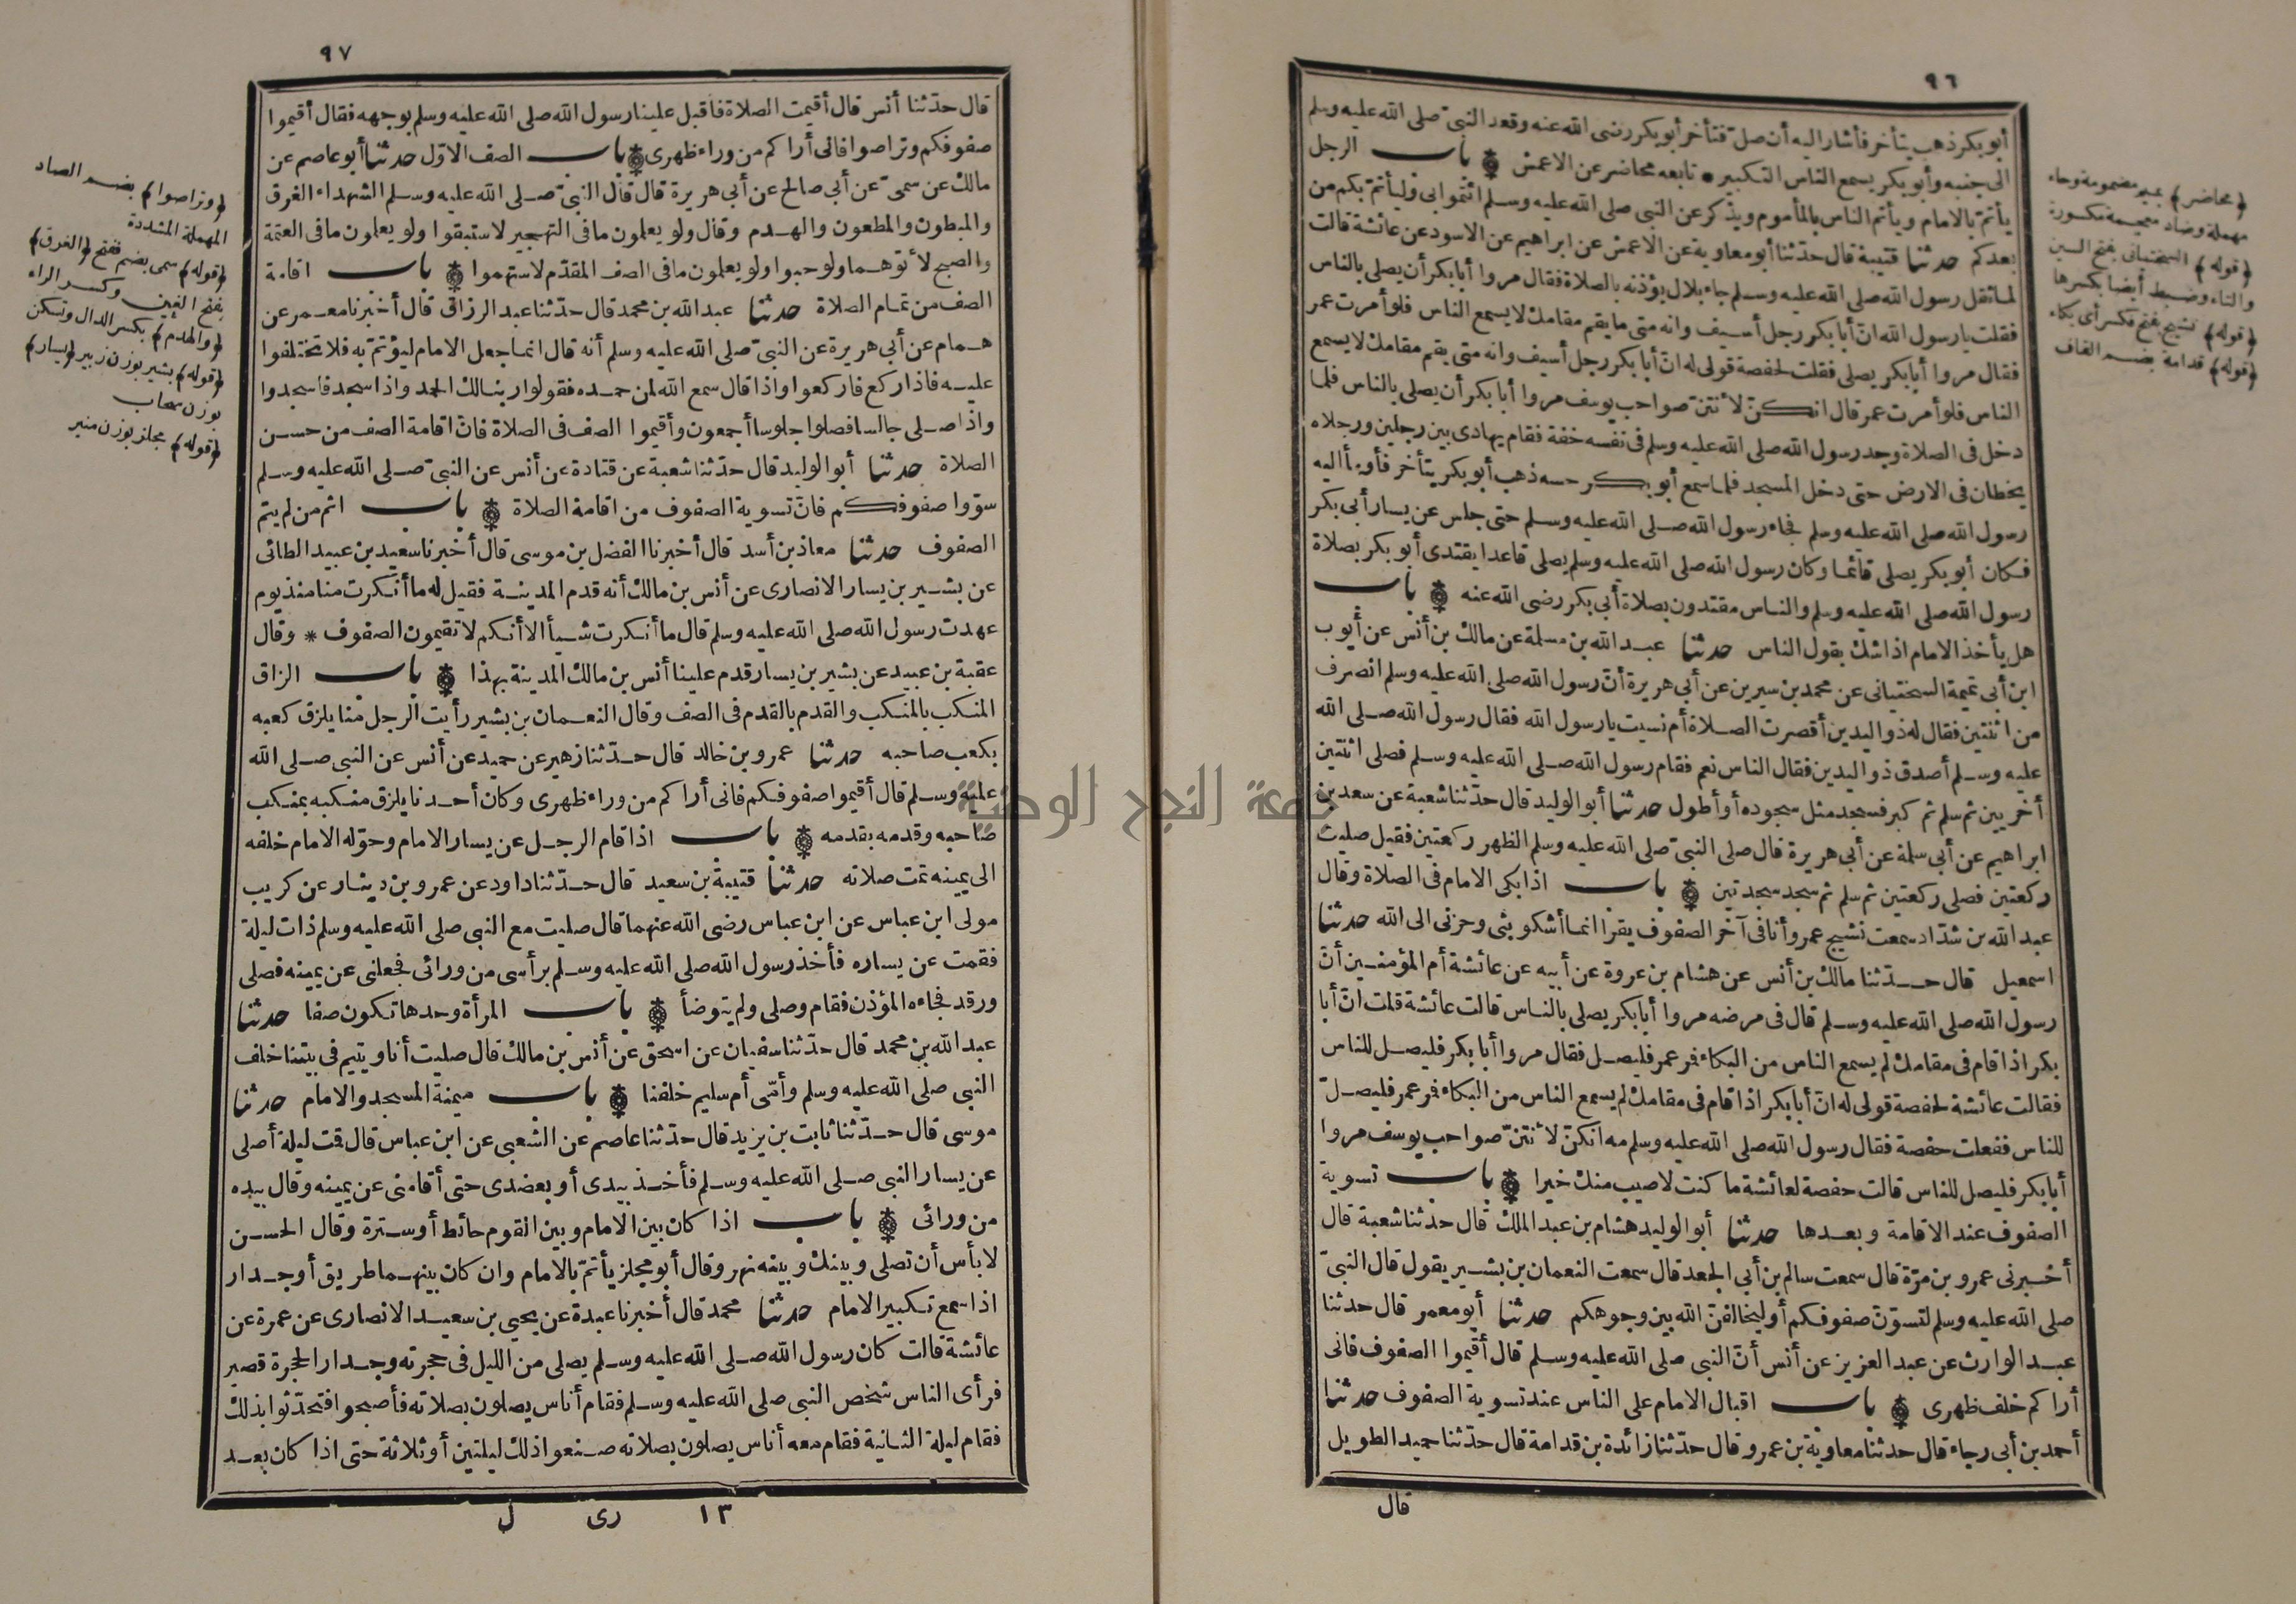 ٩٦
أبو بكر ذهب يتأخر فأشار اليه أن صل فتأخر أبو بكر رضى الله عنه وقعد النبى صلى الله عليه وسلم
الى جنبه وأبو بكر يسمع الناس التكبير * تابعه محاضر عن الاعمش باب الرجل
يأتم بالامام ويأتم الناس بالمأموم ويذكر عن النبى صلى الله عليه وسلم ائتموا بى وليأتم بكم من
بعدكم حدثنا قتيبة قال حدثنا أبو معاوية عن الاعمش عن ابراهيم عن الاسود عن عائشة قالت
لما ثقل رسول الله صلى الله عليه وسلم جاء بلال يؤذنه بالصلاة فقال مروا أبا بكر أن يصلى بالناس
فقلت يا رسول الله انّ أبا بكر رجل أسيف وانه متى ما يقم مقامك لا يسمع الناس فلو أمرت عمر
فقال مروا أبا بكر يصلى فقلت لحفصة قولى له انّ أبا بكر رجل أسيف وانه متى يقم مقامك لا يسمع
الناس فلو أمرت عمر قال انكنّ لأنتنّ صواحب يوسف مروا أبا بكر أن يصلى بالناس فلما
دخل فى الصلاة وجد رسول الله صلى الله عليه وسلم فى نفسه خفة فقام يهادى بين رجلين ورجلاه
يخطان فى الارض حتى دخل المسجد فلما سمع أبو بكر حسه ذهب أبو بكر يتأخر فأومأ اليه
رسول الله صلى الله عليه وسلم فجاء رسول الله صلى الله عليه وسلم حتى جلس عن يسار أبى بكر
فكان أبو بكر يصلى قائما وكان رسول الله صلى الله عليه وسلم يصلى قاعدا يقتدى أبو بكر بصلاة
رسول الله صلى الله عليه وسلم والناس مقتدون بصلاة أبى بكر رضى الله عنه باب
هل يأخذ الامام اذا شك بقول الناس حدثنا عبد الله بن مسلمة عن مالك بن أنس عن أيوب
ابن أبى تميمة السختيانى عن محمد بن سيرين عن أبى هريرة أنّ رسول الله صلى الله عليه وسلم انصرف
من اثنتين فقال له ذو اليدين أقصرت الصلاة أم نسيت يا رسول الله فقال رسول الله صلى الله
عليه وسلم أصدق ذو اليدين فقال الناس نعم فقام رسول الله صلى الله عليه وسلم فصلى اثنتين
أخريين ثم سلم ثم كبر فسجد مثل سجوده أو أطول حدثنا أبو الوليد قال حدثنا شعبة عن سعد بن
ابراهيم عن أبى سلمة عن أبى هريرة قال صلى النبىّ صلى الله عليه وسلم الظهر ركعتين فقيل صليت
ركعتين فصلى ركعتين ثم سلم ثم سجد سجدتين باب اذا بكى الامام فى الصلاة وقال
عبد الله بن شدّاد سمعت نشيج عمر وأنا فى آخر الصفوف يقرا انما أشكو بثى وحزنى الى الله حدثنا
اسمعيل قال حدّثنا مالك بن أنس عن هشام بن عروة عن أبيه عن عائشة أم المؤمنين أنّ
رسول الله صلى الله عليه وسلم قال فى مرضه مروا أبا بكر يصلى بالناس قالت عائشة قلت انّ أبا
بكر اذا قام فى مقامك لم يسمع الناس من البكاء فمر عمر فليصل فقال مروا أبا بكر فليصل للناس
فقالت عائشة لحفصة قولى له انّ أبا بكر اذا قام فى مقامك لم يسمع الناس من البكاء فمر عمر فليصل
للناس ففعلت حفصة فقال رسول الله صلى الله عليه وسلم مه انكنّ لأنتنّ صواحب يوسف مروا
أبا بكر فليصل للناس قالت حفصة لعائشة ما كنت لاصيب منك خيرا باب تسوية
الصفوف عند الاقامة وبعدها حدثنا أبو الوليد هشام بن عبد الملك قال حدثنا شعبة قال
أخبرنى عمرو بن مرّة قال سمعت سالم بن أبى الجعد قال سمعت النعمان بن بشير يقول قال النبىّ
صلى الله عليه وسلم لتسوّنّ صفوفكم أو ليخالفنّ الله بين وجوهكم حدثنا أبو معمر قال حدثنا
عبد الوارث عن عبد العزيز عن أنس أنّ النبى صلى الله عليه وسلم قال أقيموا الصفوف فانى
أراكم خلف ظهرى باب اقبال الامام على الناس عند تسوية الصفوف حدثنا
أحمد بن أبى رجاء قال حدثنا معاوية بن عمرو قال حدّثنا زائدة بن قدامة قال حدّثنا حميد الطويل
قال
(محاضر) بميم مضمومة وحاء
مهملة وضاد معجمة مكسورة
(قوله) السختيانى بفتح السين
والتاء وضبط أيضا بكسرها
(قوله) نشيج بفتح فكسر أى بكاء
(قوله) قدامة بضم القاف
٩٧
قال حدّثنا أنس قال أقيمت الصلاة فاقبل علينا رسول الله صلى الله عليه وسلم بوجهه فقال أقيموا
صفوفكم وتراصوا فانى أراكم من وراء ظهرى باب الصف الاوّل حدثنا أبو عاصم عن
مالك عن سمىّ عن أبى صالح عن أبى هريرة قال قال النبىّ صلى الله عليه وسلم الشهداء الغرق
والمبطون والمطعون والهدم وقال ولو يعلمون ما فى التهجير لاستبقوا ولو يعلمون ما فى العتمة
والصبح لأتوهما ولو حبوا ولو يعلمون ما فى الصف المقدّم لاستهموا باب اقامة
الصف من تمام الصلاة حدثنا عبد الله بن محمد قال حدّثنا عبد الرزاق قال أخبرنا معمر عن
همام عن أبى هريرة عن النبىّ صلى الله عليه وسلم أنه قال انما جعل الامام ليؤتمّ به فلا تختلفوا
عليه فاذا ركع فاركعوا واذا قال سمع الله لمن حمده فقولوا ربنا لك الحمد واذا سجد فاسجدوا
واذا صلى جالسا فصلوا جلوسا أجمعون وأقيموا الصف فى الصلاة فانّ اقامة الصف من حسن
الصلاة حدثنا أبو الوليد قال حدّثنا شعبة عن قتادة عن أنس عن النبىّ صلى الله عليه وسلم
سوّوا صفوفكم فانّ تسوية الصفوف من اقامة الصلاة باب اثم من لم يتم
الصفوف حدثنا معاذ بن أسد قال أخبرنا الفضل بن موسى قال أخبرنا سعيد بن عبيد الطائى
عن بشير بن يسار الانصارى عن أنس بن مالك أنه قدم المدينة فقيل له ما أنكرت منا منذ يوم
عهدت رسول الله صلى الله عليه وسلم قال ما أنكرت شيأ الا أنكم لا تقيمون الصفوف * وقال
عقبة بن عبيد عن بشير بن يسار قدم علينا أنس بن مالك المدينة بهذا باب الزاق
المنكب بالمنكب والقدم بالقدم فى الصف وقال النعمان بن بشير رأيت الرجل منا يلزق كعبه
بكعب صاحبه حدثنا عمرو بن خالد قال حدّثنا زهير عن حميد عن أنس عن النبى صلى الله
عليه وسلم قال أقيموا صفوفكم فانى أراكم من وراء ظهرى وكان أحدنا يلزق منكبه بمنكب
صاحبه وقدمه بقدمه باب اذا قام الرجل عن يسار الامام وحوّله الامام خلفه
الى يمينه تمت صلاته حدثنا قتيبة بن سعيد قال حدّثنا داود عن عمرو بن دينار عن كريب
مولى ابن عباس عن ابن عباس رضى الله عنهما قال صليت مع النبى صلى الله عليه وسلم ذات ليلة
فقمت عن يساره فأخذ رسول الله صلى الله عليه وسلم برأسى من ورائى فجعلنى عن يمينه فصلى
ورقد فجاءه المؤذن فقام وصلى ولم يتوضأ باب المرأة وحدها تكون صفا حدثنا
عبد الله بن محمد قال حدّثنا سفيان عن اسحق عن أنس بن مالك قال صليت أنا ويتيم فى بيتنا خلف
النبى صلى الله عليه وسلم وأمّى أم سليم خلفنا باب ميمنة المسجد والامام حدثنا
موسى قال حدّثنا ثابت بن يزيد قال حدّثنا عاصم عن الشعبى عن ابن عباس قال قمت ليلة أصلى
عن يسار النبى صلى الله عليه وسلم فأخذ بيدى أو بعضدى حتى أقامنى عن يمينه وقال بيده
من ورائى باب اذا كان بين الامام وبين القوم حائط أو سترة وقال الحسن
لا بأس أن تصلى وبينك وبينه نهر وقال أبو مجلز يأتمّ بالامام وان كان بينهما طريق أو جدار
اذا سمع تكبير الامام حدثنا محمد قال أخبرنا عبدة عن يحيى بن سعيد الانصارى عن عمرة عن
عائشة قالت كان رسول الله صلى الله عليه وسلم يصلى من الليل فى حجرته وجدار الحجرة قصير
فرأى الناس شخص النبى صلى الله عليه وسلم فقام أناس يصلون بصلاته فأصبحوا فتحدّثوا بذلك
فقام ليلة الثانية فقام معه أناس يصلون بصلاته صنعوا ذلك ليلتين أو ثلاثة حتى اذا كان بعد
١٣ رى ل
(وتراصوا) بضم الصاد
المهملة المشددة
(قوله) سمى بضم ففتح (الغرق)
بفتح الغين وكسر الراء
(والهدم) بكسر الدال وتسكن
(قوله) بشير بوزن زبير (يسار)
بوزن سحاب
(قوله) مجلز بوزن منبر
جامعة النجاح الوطنية